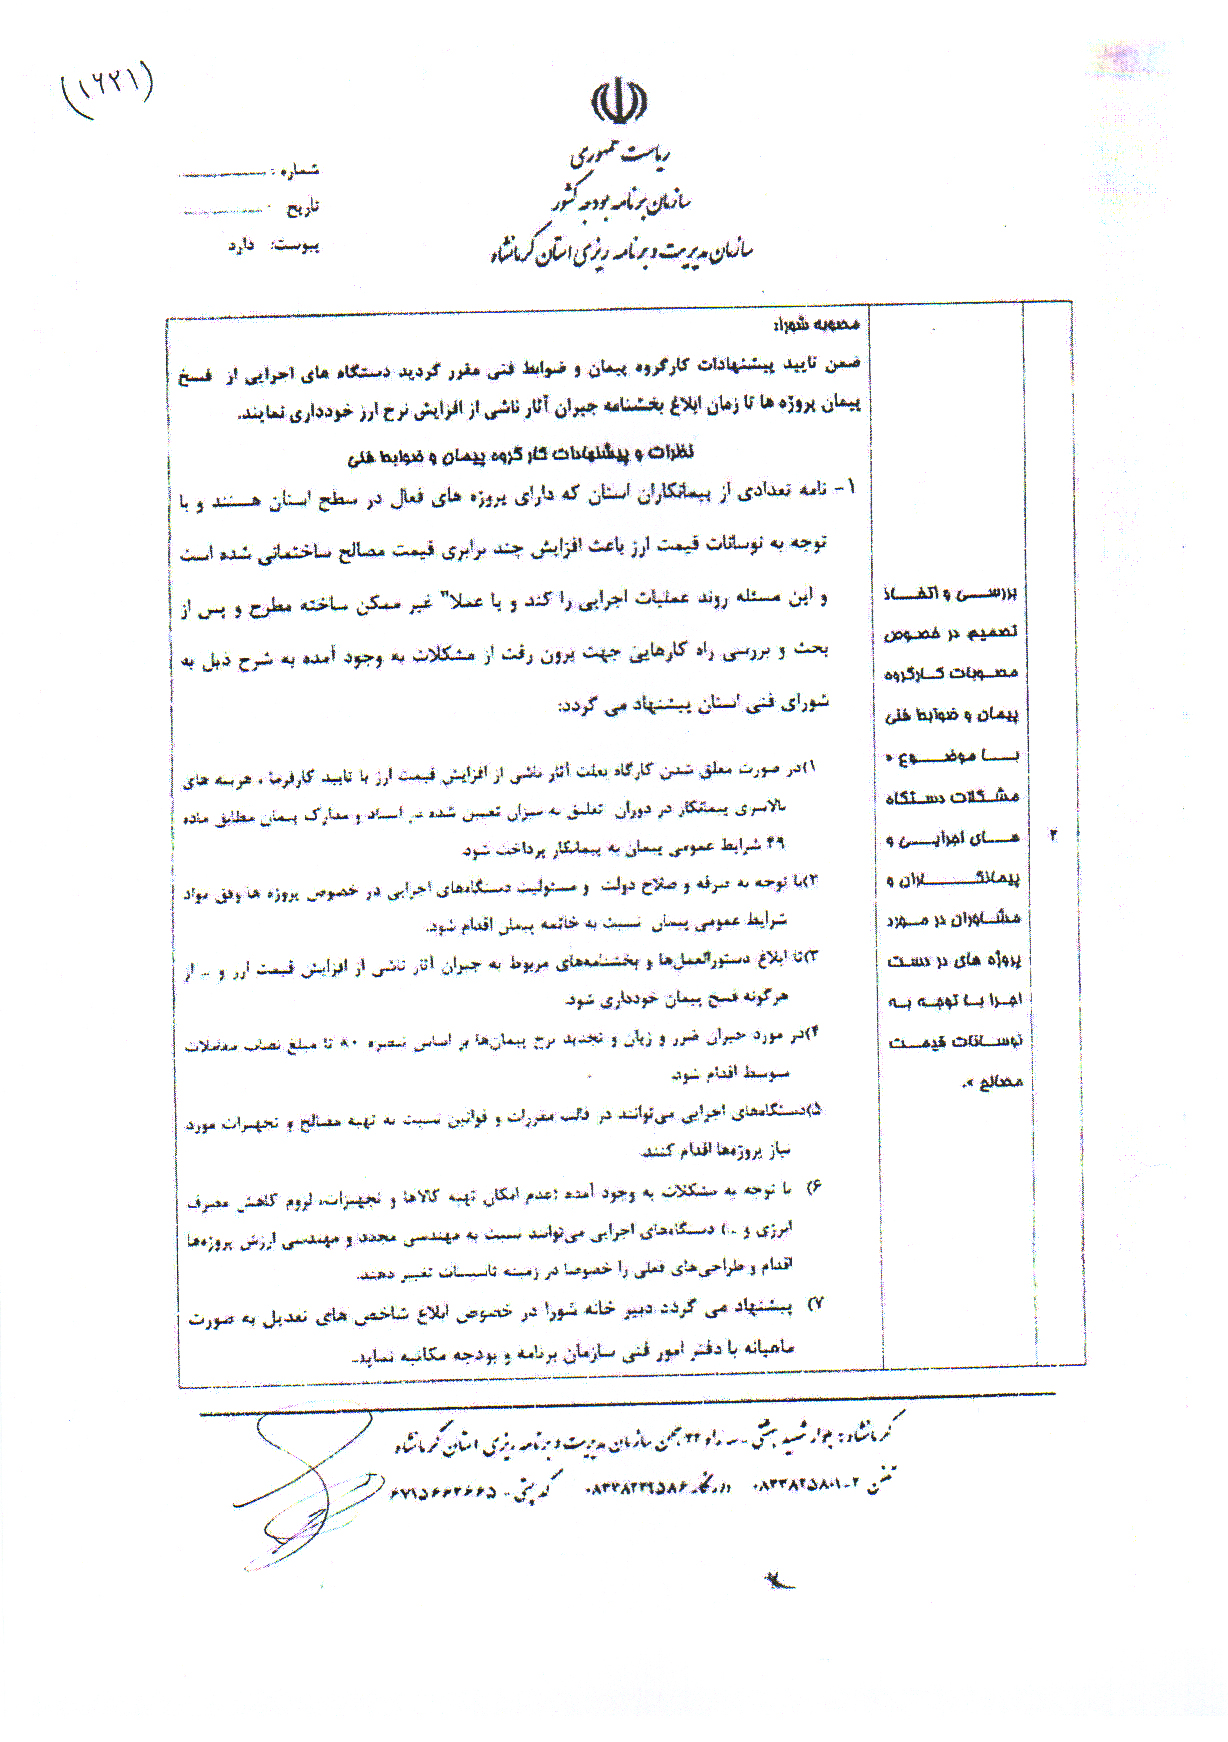 (۱۶۲۱)
ریاست جمهوری
سازمان برنامه و بودجه کشور
سازمان مدیریت و برنامه ریزی استان کرمانشاه
شماره :
تاریخ :
پیوست: دارد
۲
بررسی و اتخاذ
تصمیم در خصوص
مصوبات کارگروه
پیمان و ضوابط فنی
با موضوع «
مشکلات دستگاه
های اجرایی و
پیمانکاران و
مشاوران در مورد
پروژه های در دست
اجرا با توجه به
نوسانات قیمت
مصالح ».
مصوبه شورا:
ضمن تایید پیشنهادات کارگروه پیمان و ضوابط فنی مقرر گردید دستگاه های اجرایی از فسخ
پیمان پروژه ها تا زمان ابلاغ بخشنامه جبران آثار ناشی از افزایش نرخ ارز خودداری نمایند.
نظرات و پیشنهادات کارگروه پیمان و ضوابط فنی
۱- نامه تعدادی از پیمانکاران استان که دارای پروژه های فعال در سطح استان هستند و با
توجه به نوسانات قیمت ارز باعث افزایش چند برابری قیمت مصالح ساختمانی شده است
و این مسئله روند عملیات اجرایی را کند و یا عملا" غیر ممکن ساخته مطرح و پس از
بحث و بررسی راه کارهایی جهت برون رفت از مشکلات به وجود آمده به شرح ذیل به
شورای فنی استان پیشنهاد می گردد:
۱)در صورت معلق شدن کارگاه بعلت آثار ناشی از افزایش قیمت ارز با تایید کارفرما ، هزینه های
بالاسری پیمانکار در دوران تعلیق به میزان تعیین شده در اسناد و مدارک پیمان مطابق ماده
۴۹ شرایط عمومی پیمان به پیمانکار پرداخت شود.
۲)با توجه به صرفه و صلاح دولت و مسئولیت دستگاه‌های اجرایی در خصوص پروژه ها وفق مواد
شرایط عمومی پیمان نسبت به خاتمه پیمان اقدام شود.
۳)تا ابلاغ دستورالعمل‌ها و بخشنامه‌های مربوط به جبران آثار ناشی از افزایش قیمت ارز و .. از
هرگونه فسخ پیمان خودداری شود.
۴)در مورد جبران ضرر و زیان و تجدید نرخ پیمان‌ها بر اساس تبصره ۸۰ تا مبلغ نصاب معاملات
متوسط اقدام شود.
۵)دستگاه‌های اجرایی می‌توانند در قالب مقررات و قوانین نسبت به تهیه مصالح و تجهیزات مورد
نیاز پروژه‌ها اقدام کنند.
۶) با توجه به مشکلات به وجود آمده (عدم امکان تهیه کالاها و تجهیزات، لزوم کاهش مصرف
انرژی و ..) دستگاه‌های اجرایی می‌توانند نسبت به مهندسی مجدد و مهندسی ارزش پروژه‌ها
اقدام و طراحی‌های فعلی را خصوصا در زمینه تاسیسات تغییر دهند.
۷) پیشنهاد می گردد دبیر خانه شورا در خصوص ابلاغ شاخص های تعدیل به صورت
ماهیانه با دفتر امور فنی سازمان برنامه و بودجه مکاتبه نماید.
کرمانشاه : بلوار شهید بهشتی - سه راه ۲۲ بهمن سازمان مدیریت و برنامه ریزی استان کرمانشاه
تلفن ۲-۰۸۳۳۸۲۵۸۰۱ دورنگار ۰۸۳۳۸۲۳۹۵۸۶ کد پستی - ۶۷۱۵۶۶۲۶۶۵